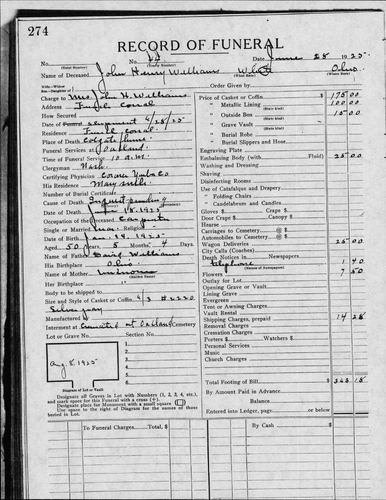 274
RECORD OF FUNERAL
No. 44 Date June 28 1925
(Total Number) (Yearly Number)
Name of Deceased John Henry Williams White Ohio
(What Race) (Where Born)
Charge to Mrs John H. Williams
Address
How Secured
Date of Funeral 6/28/25
Residence
Place of Death
Funeral Services at Oakland
Time of Funeral Service 10 a.m.
Clergyman
Certifying Physician
His Residence Marysville
Number of Burial Certificate
Cause of Death
Date of Death June 18, 1925
Occupation of the Deceased Carpenter
Single or Married Religion
Date of Birth 14, 1925
Aged 50 Years 5 Months 4 Days
Name of Father David Williams
His Birthplace Ohio
Name of Mother unknown
(Maiden Name)
Her Birthplace "
Body to be shipped to
Size and Style of Casket or Coffin 6/3 #2220
Silver gray
Manufactured by
Interment at cremated at Oakland Cemetery
Lot or Grave No. Section No.
Aug 8, 1925
1.
2.
3.
4.
5.
6.
Diagram of Lot or Vault
Designate all Graves in Lot with Numbers (1, 2, 3, 4, etc.),
and mark space for this Funeral with a cross (+).
Designate place for Monument with a small square
Use space to the right of Diagram for the names of those
buried in Lot.
Order Given by
Price of Casket or Coffin $ 175 00
(State kind)
" Metallic Lining 100 00
(State kind)
" Outside Box 15 00
(State kind)
" Grave Vault
(State kind)
" Burial Robe
(State kind)
" Burial Slippers and Hose
Engraving Plate
Embalming Body (with Fluid) 25 00
Washing and Dressing
Shaving
Disinfecting Rooms
Use of Catafalque and Drapery
" Folding Chairs
" Candelabrum and Candles
Gloves $ Crape $
Door Crape $ Canopy $
Hearse
Carriages to Cemetery @ $
Automobiles to Cemetery @ $
Wagon Deliveries 25 00
City Calls (Coaches)
Death Notices in Newspapers
telephone 1 40
(Names of Newspapers)
Flowers 7 50
Outlay for Lot
Opening Grave or Vault
Lining Grave
Evergreen
Tent or Awning Charges
Vault Rental
Shipping Charges, prepaid 14 28
Removal Charges
Cremation Charges
Porters $ Watchers $
Personal Services
Music
Church Charges
Total Footing of Bill $ 363 18
By Amount Paid in Advance
Balance
Entered into Ledger, page or below
To Total Amount $ By Cash $